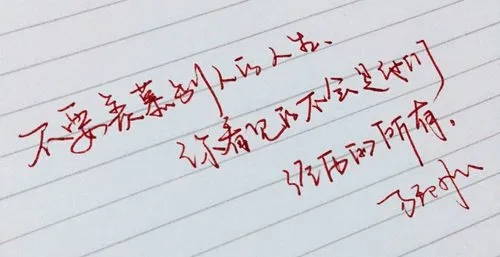 不要羡慕别人的人生、
你看见的不会是他们
经历的所有.